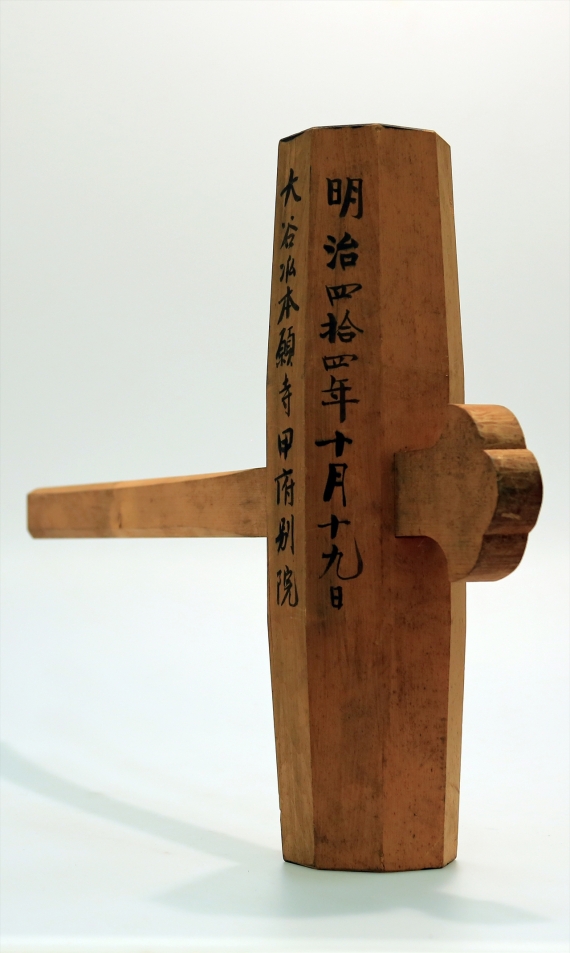 明治四拾四年十月十九日
大谷派本願寺甲府别院